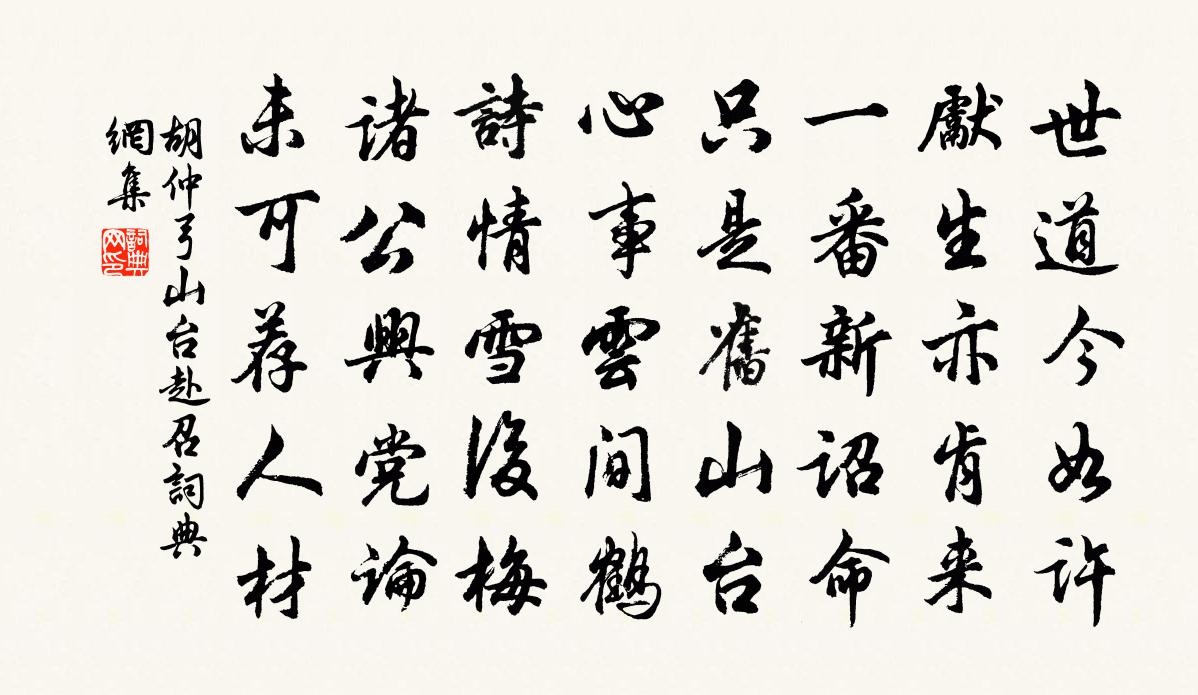 世道今如许
獻生亦肯来
一番新诏命
只是舊山台
心事雲间鶴
詩情雪後梅
诸公興党论
未可荐人材
胡仲弓山台赴召詞典
網集
詞典
网印